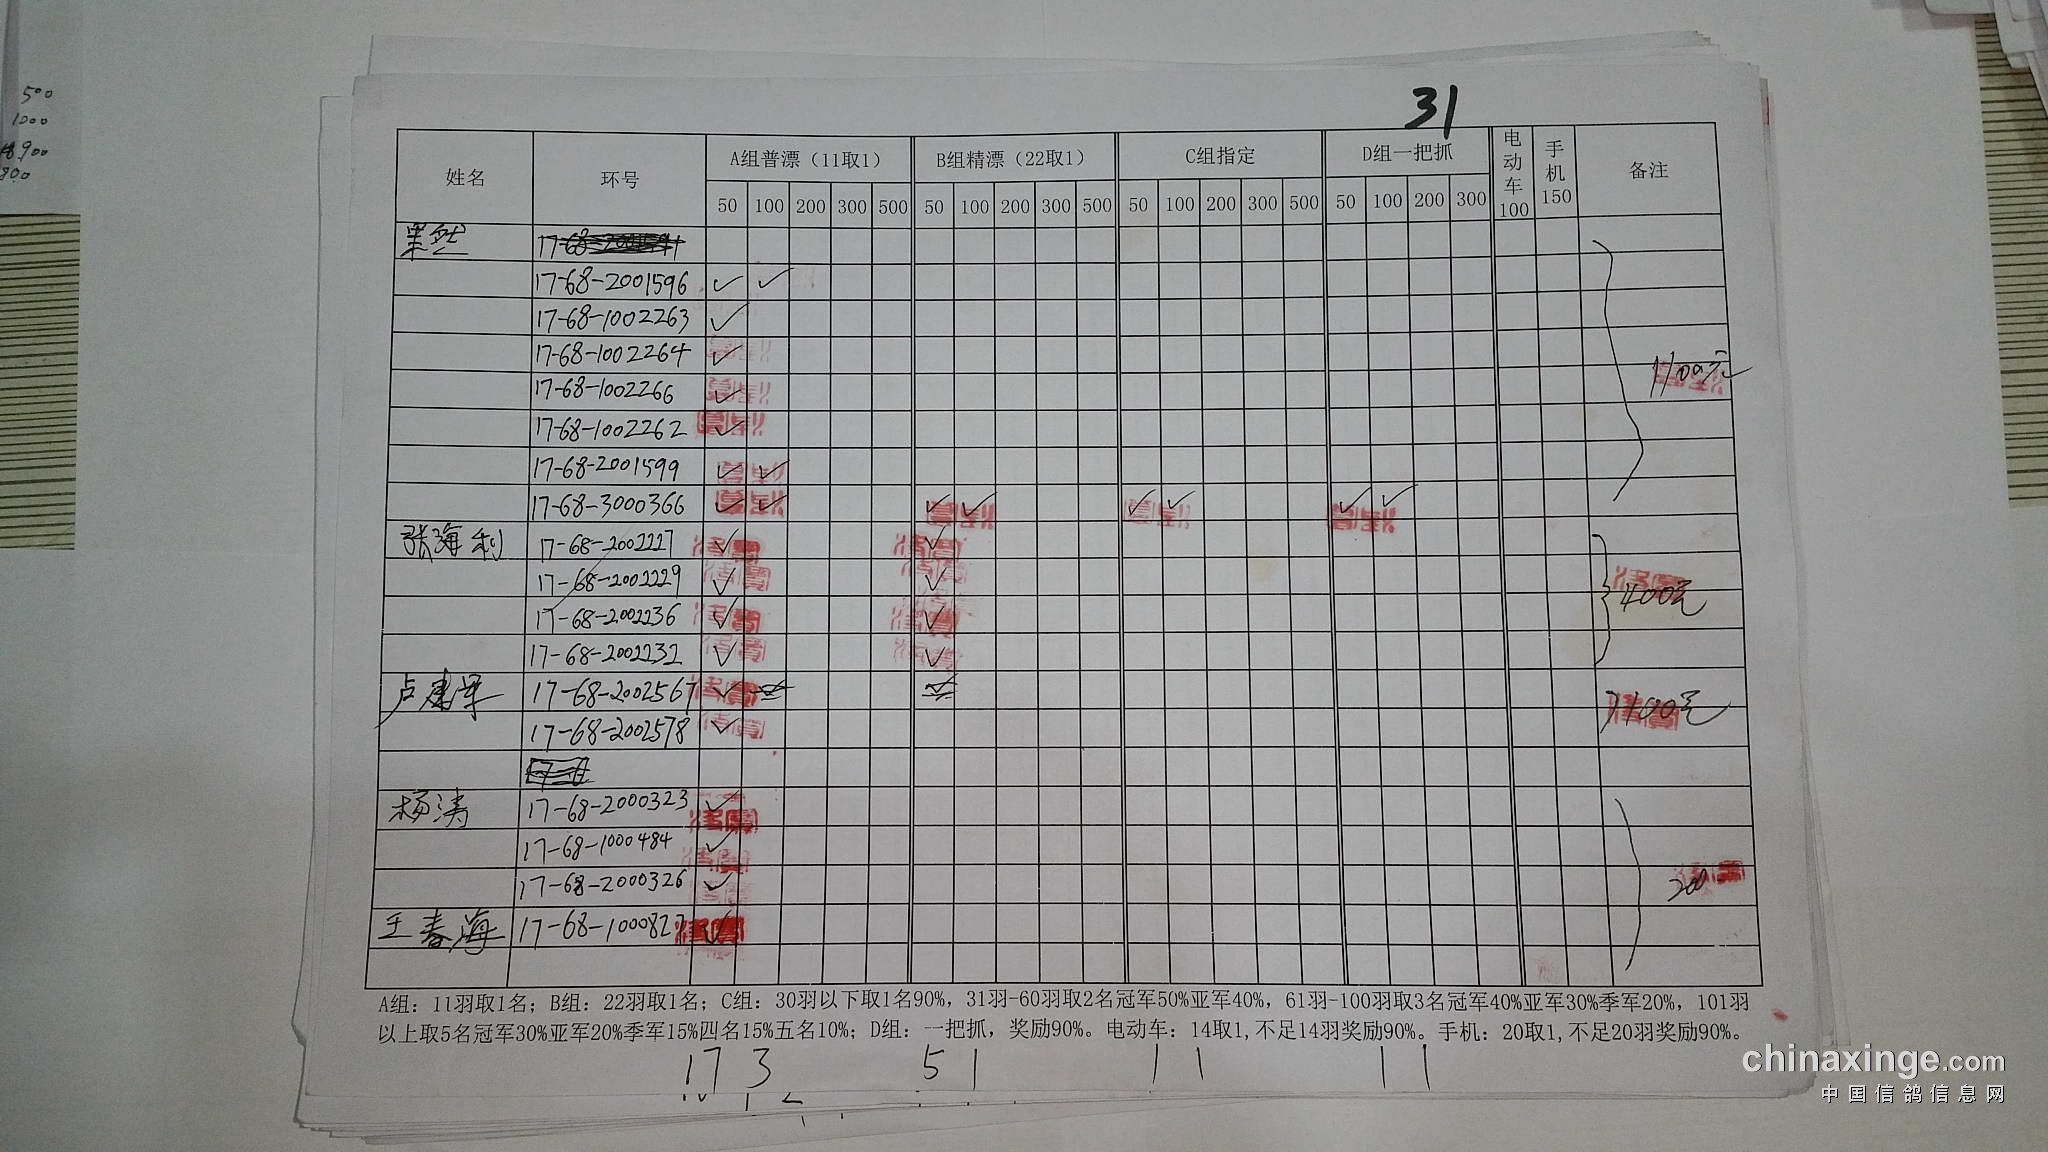 500
1000
31
姓名 环号 A组普漂（11取1） B组精漂（22取1） C组指定 D组一把抓 电动车100 手机150 备注
50 100 200 300 500 50 100 200 300 500 50 100 200 300 500 50 100 200 300
果然 17-68-
17-68-2001596 ✓ ✓
17-68-1002263 ✓
17-68-1002264 ✓
17-68-1002266 ✓ 1100元
17-68-1002262 ✓
17-68-2001599 ✓ ✓
17-68-3000366 ✓ ✓ ✓ ✓ ✓ ✓ ✓ ✓
张海利 17-68-2002227 ✓ ✓
17-68-2002229 ✓ ✓
17-68-2002236 ✓ ✓ 400元
17-68-2002232 ✓ ✓
卢建军 17-68-2002567 ✓
17-68-2002578 ✓ 100元
杨涛 17-68-2000323 ✓
17-68-1000484 ✓
17-68-2000326 ✓ 200
王春海 17-68-1000827 ✓
A组：11羽取1名；B组：22羽取1名；C组：30羽以下取1名90%，31羽-60羽取2名冠军50%亚军40%，61羽-100羽取3名冠军40%亚军30%季军20%，101羽
以上取5名冠军30%亚军20%季军15%四名15%五名10%；D组：一把抓，奖励90%。电动车：14取1,不足14羽奖励90%。手机：20取1,不足20羽奖励90%。
17 3 5 1 1 1 1 1
chinaxinge.com
中国信鸽信息网